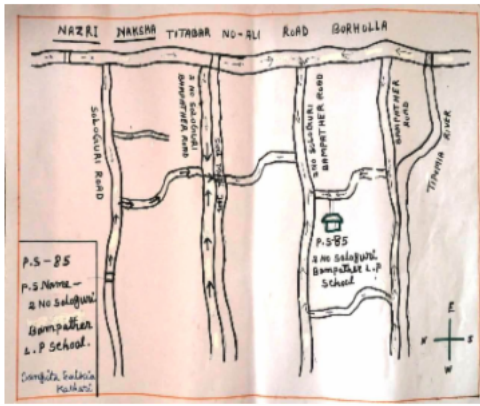 NAZRI NAKSHA TITABAR NO-ALI ROAD BORHOLLA
SOLOGURI ROAD
2 NO SOLOGURI
BAMPATHER ROAD
2NO SOLOGURI
BAMPATHER ROAD
BAMPATHER
ROAD
TIPOMIA RIVER
P.S-85
2 No Sologuri
Bampather L.P
School
P.S-85
P.S. Name-
2 No Sologuri
Bampather
L.P School.
E
N S
W